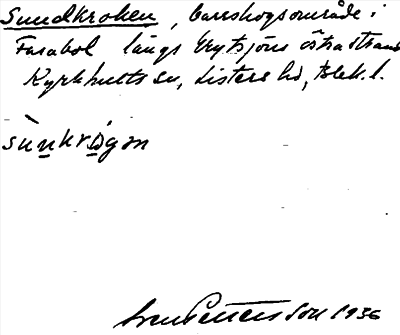 Sundkroken, barrskogsområde i
Farabol längs Grytsjöns östra strand
Kyrkhults sn, Listers hd, Blek. l.
sùnkrógan
Sven Pettersson 1936